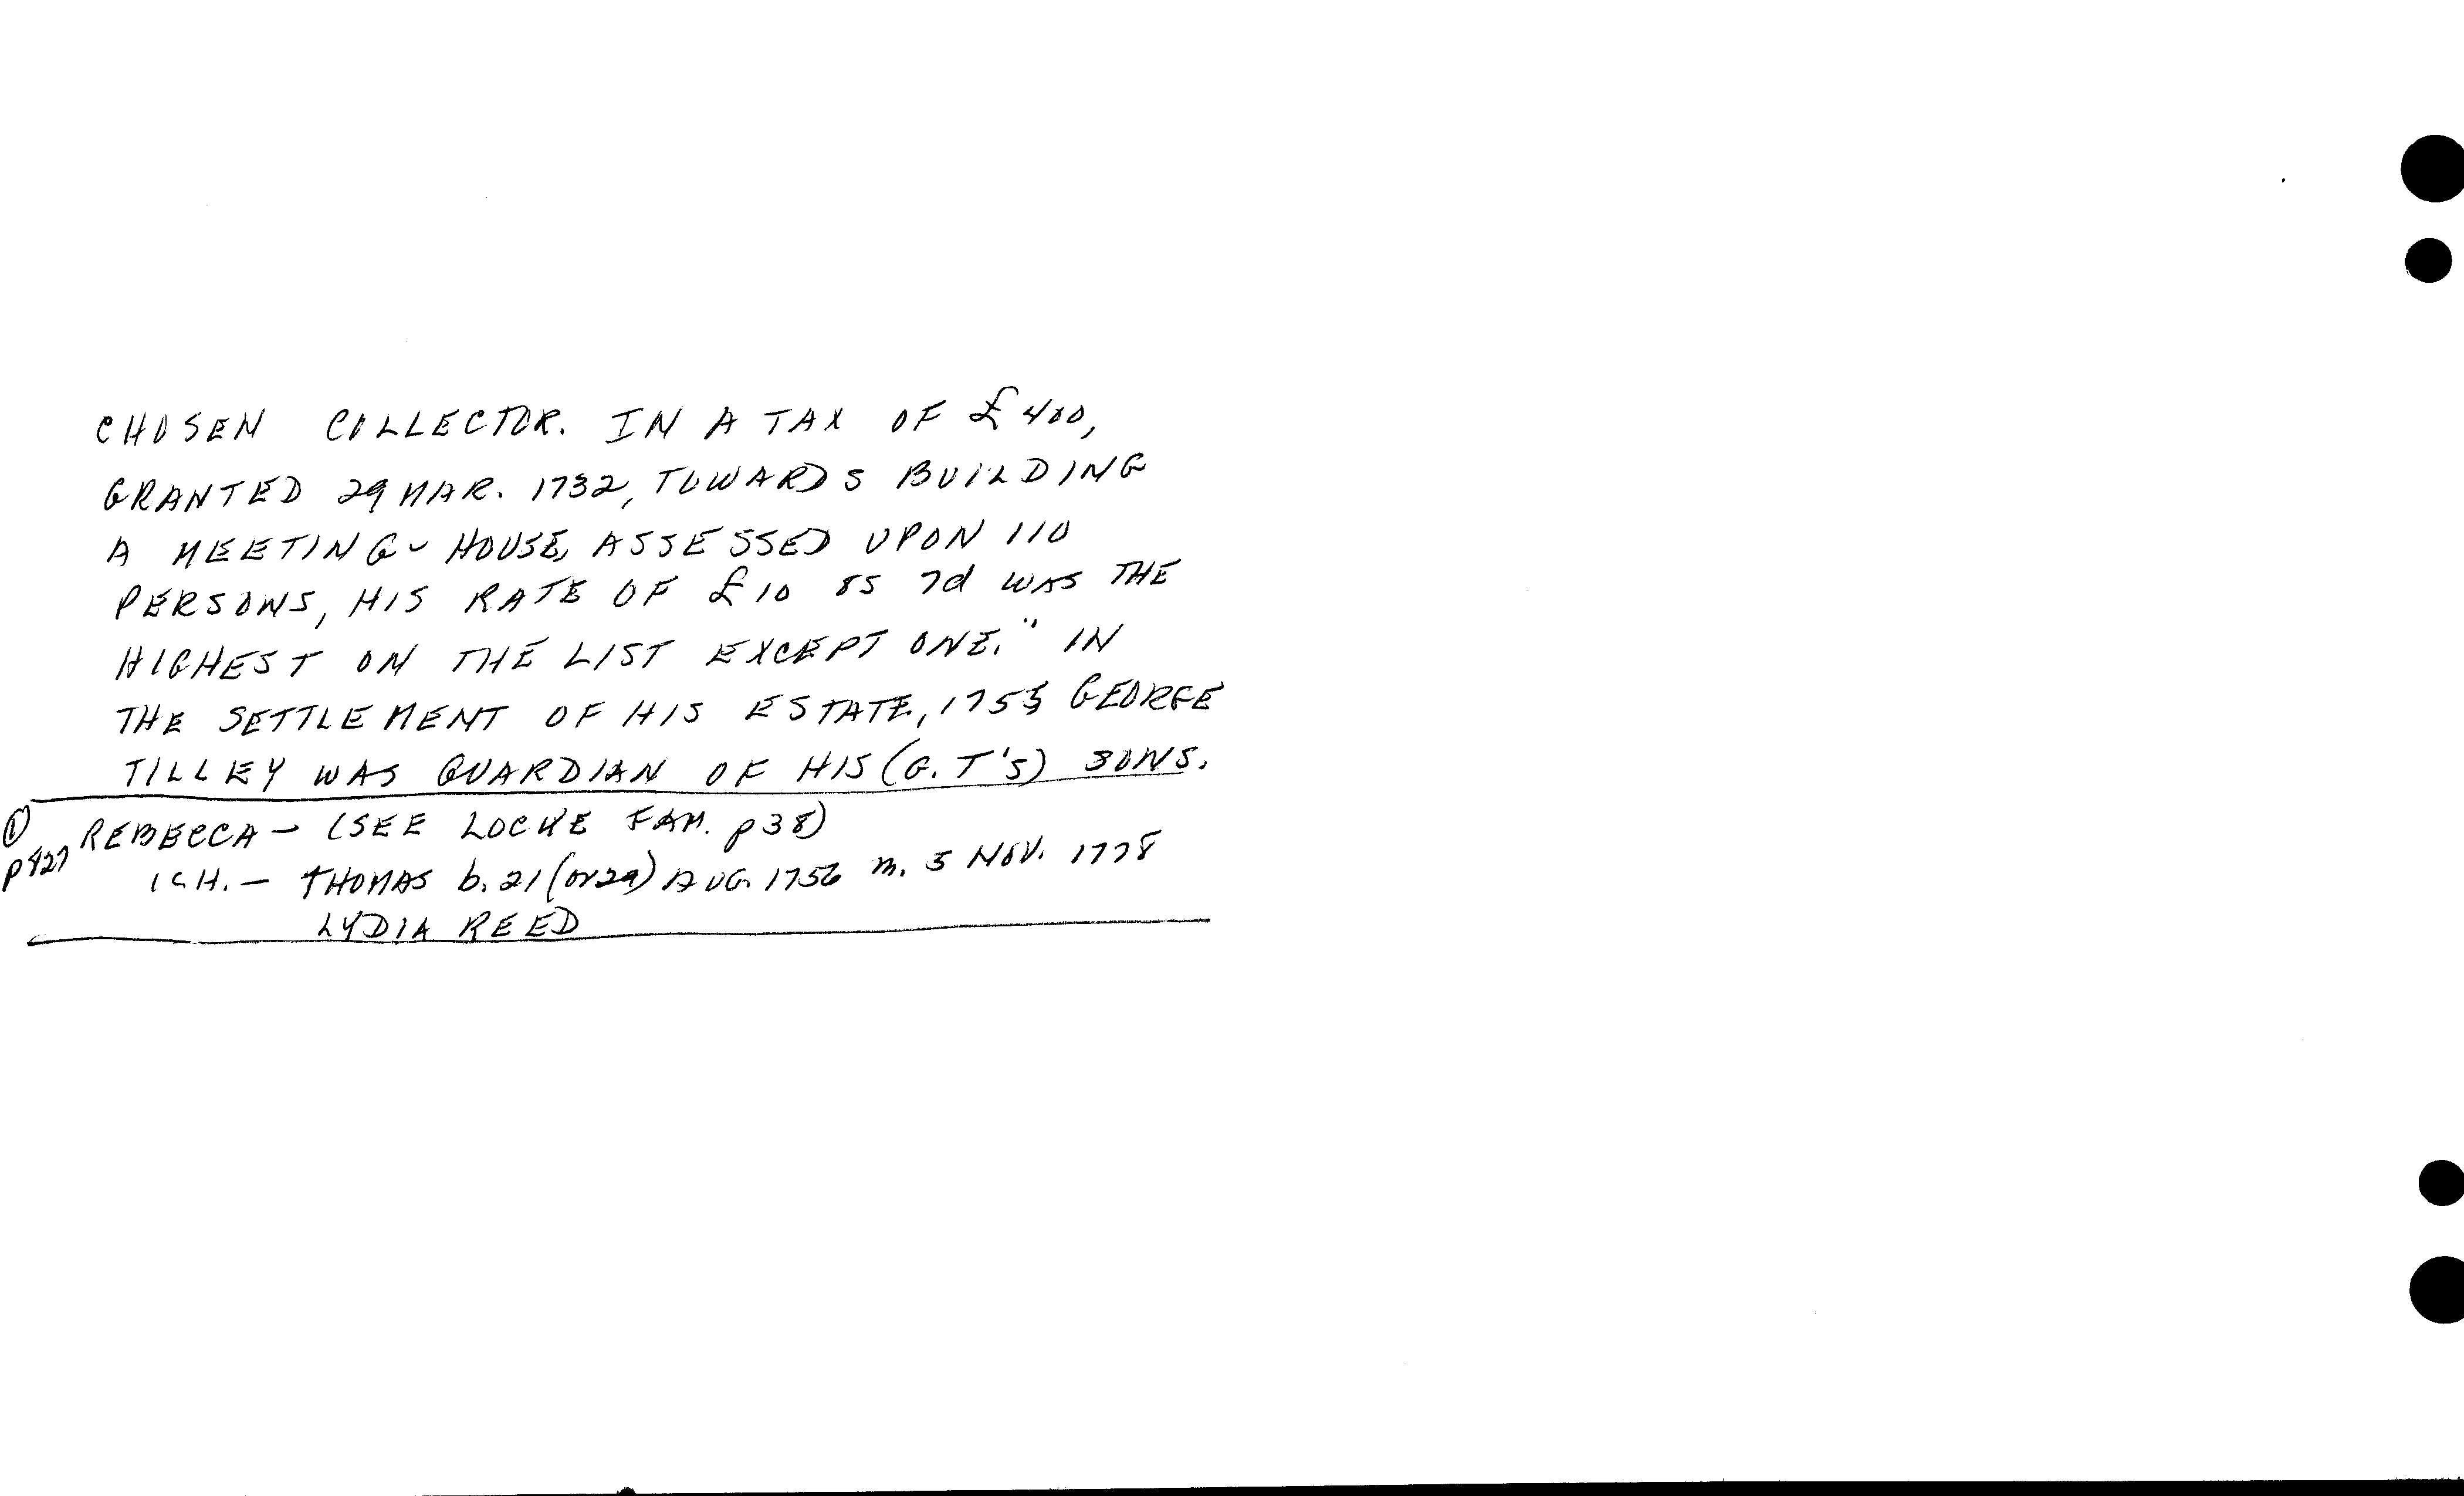 CHOSEN COLLECTOR. IN A TAX OF £400,
GRANTED 29 MAR. 1732, TOWARDS BUILDING
A MEETING-HOUSE, ASSESSED UPON 110
PERSONS, HIS RATE OF £10 8S 7d WAS THE
HIGHEST ON THE LIST EXCEPT ONE." IN
THE SETTLEMENT OF HIS ESTATE, 1755 GEORGE
TILLEY WAS GUARDIAN OF HIS (G. T'S) SONS.
① REBECCA - (SEE LOCKE FAM. p38)
p427 1CH. - THOMAS b. 21 (or 29) AUG. 1756 m. 5 NOV. 1778
LYDIA REED